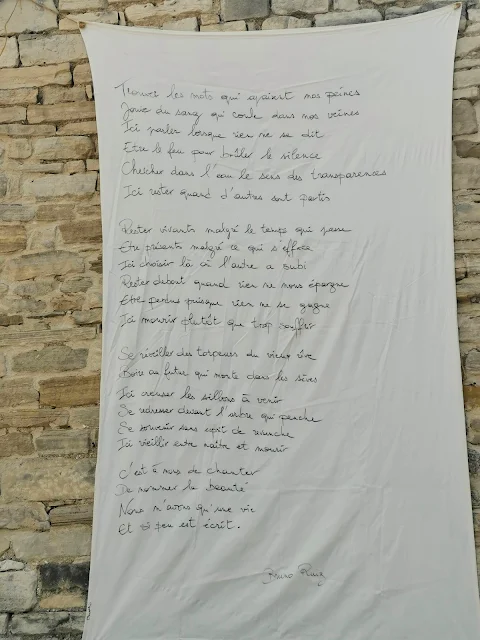 Trouver les mots qui apaisent nos peines
Jouir du sang qui coule dans nos veines
Ici parler lorsque rien ne se dit
Etre le feu pour brûler le silence
Chercher dans l'eau le sens des transparences
Ici rester quand d'autres sont partis
Rester vivants malgré le temps qui passe
Etre présents malgré ce qui s'efface
Ici choisir là où l'autre a subi
Rester debout quand rien ne nous épargne
Etre perdus puisque rien ne se gagne
Ici mourir plutôt que trop souffrir
Se réveiller des torpeurs du vieux rêve
Boire au futur qui monte dans les sèves
Ici creuser les sillons à venir
Se redresser devant l'arbre qui penche
Se souvenir sans esprit de revanche
Ici vieillir entre naître et mourir
C'est à nous de chanter
De nommer la beauté
Nous n'avons qu'une vie
Et si peu est écrit.
Bruno Ruiz